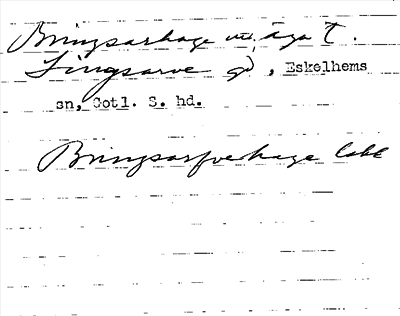 Bringsarhage m, äga t.
Tingsarve gd, Eskelhems
sn, Gotl. S. hd.
Bringsarfvehage lokk